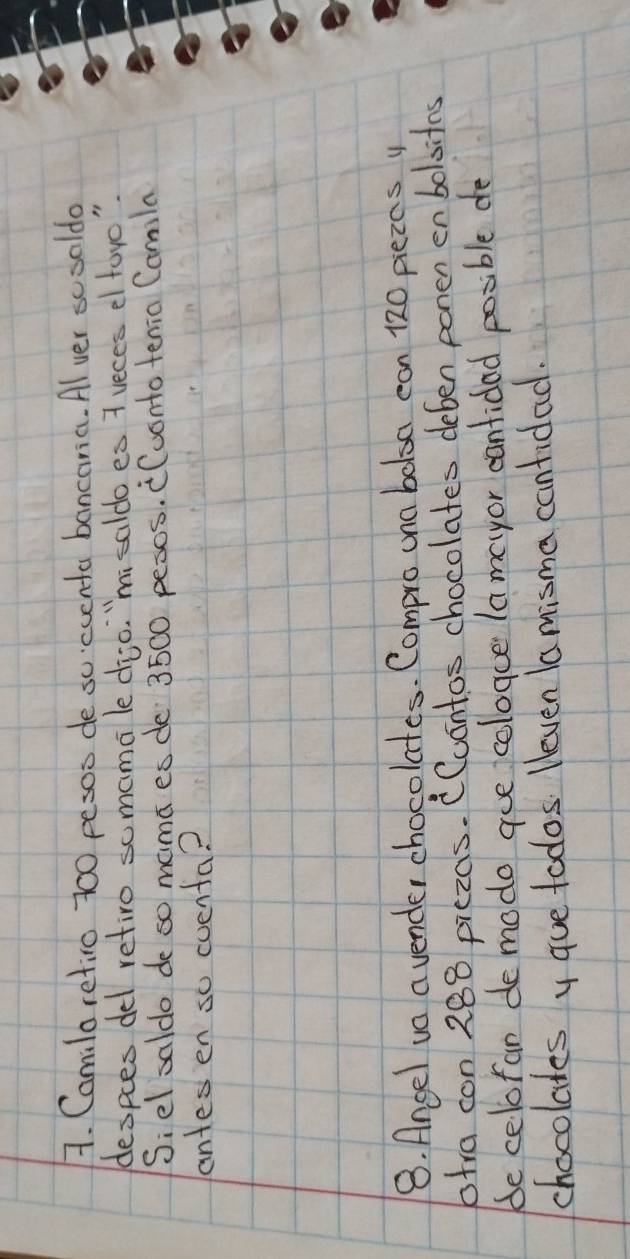 7. Camila retiro 700 pesos de su cuenta bancaria. Al ver su saldo
despues del retiro su mamá le dijo. "mi saldo es 7 veces el tuyo".
Si el saldo de su mamá es de 3500 pesos. ¿Cuánto tenia Camila
antes en su cuenta?
8. Angel va a vender chocolates. Compro una bolsa con 120 piezas y
otra con 288 piezas. ¿Cuántos chocolates deben poner en bolsitas
de celofan de modo que coloque la mayor cantidad posible de
chocolates y que todos lleven la misma cantidad.